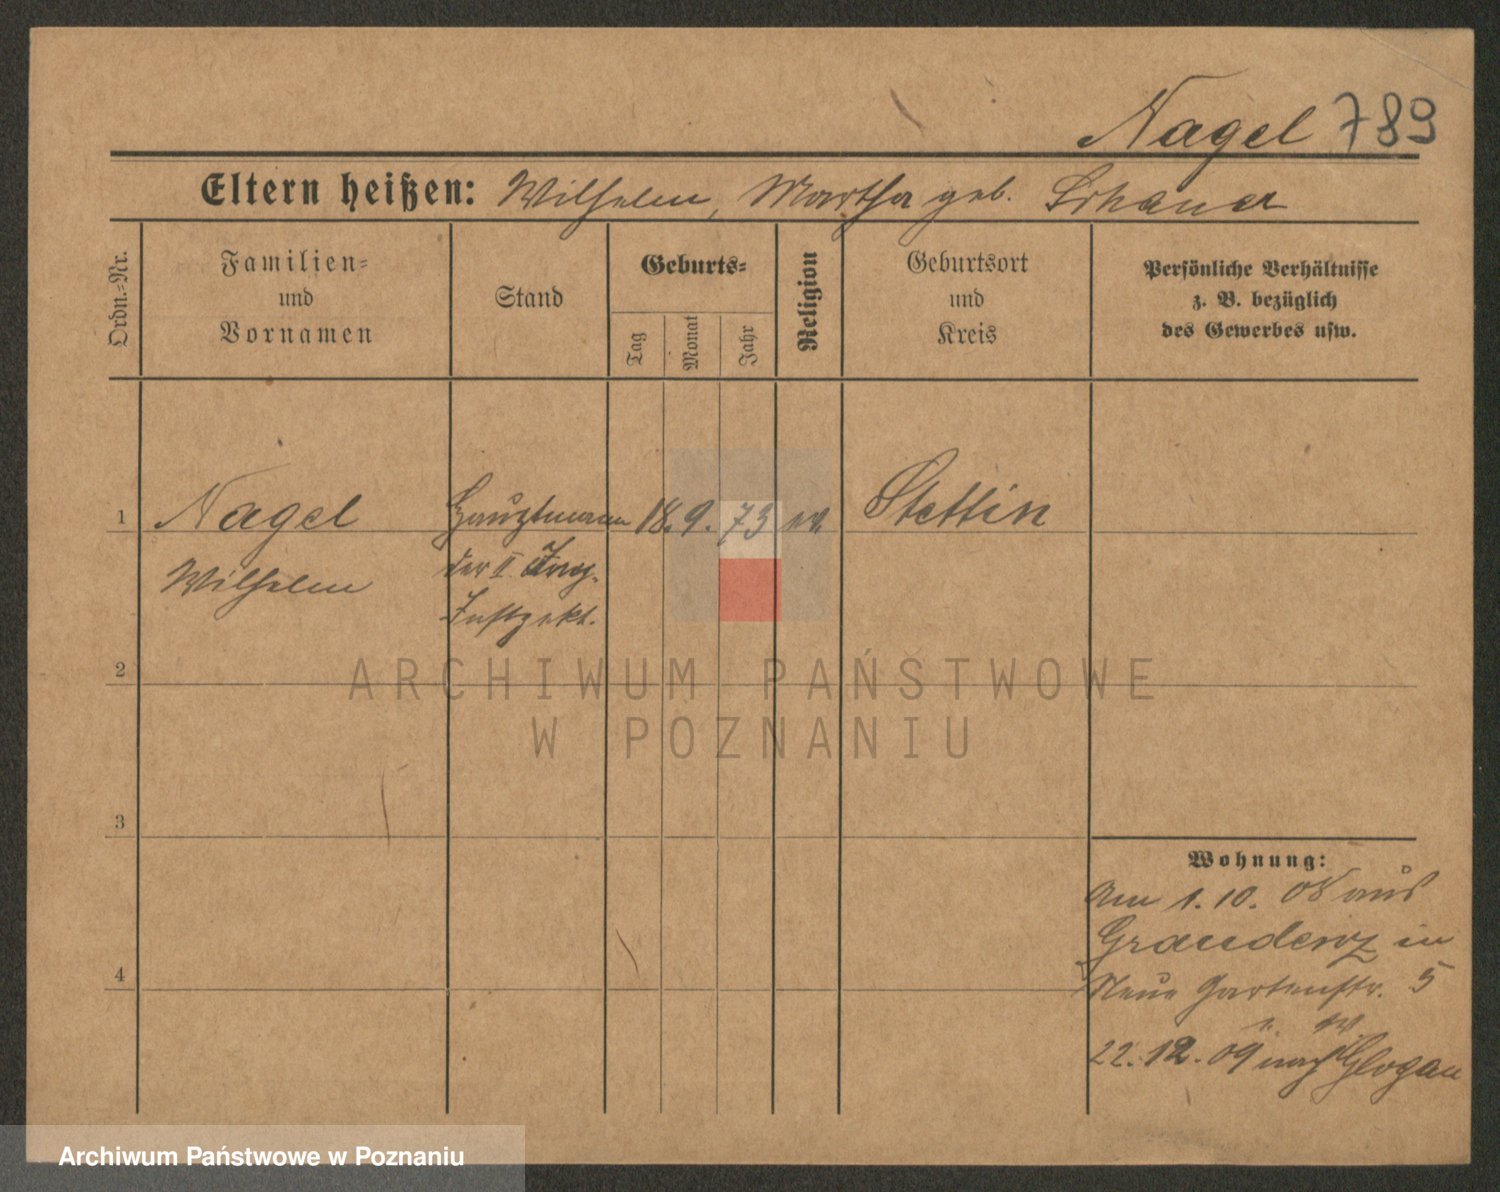 Nagel 789
Eltern heißen: Wilhelm, Martha geb.
Ordn.-Nr.
Familien-
und
Vornamen
Stand
Geburts-
Tag
Monat
Jahr
Religion
Geburtsort
und
Kreis
Persönliche Verhältnisse
z. B. bezüglich
des Gewerbes usw.
1 Nagel Hauptmann 18. 9. 73 ev Stettin
Wilhelm der II. Ing.
Inspekt.
2
3
4
Wohnung:
Am 1. 10. 08 aus
Graudenz in
Neue Gartenstr. 5
22. 12. 09 nach Glogau
ARCHIWUM PAŃSTWOWE
W POZNANIU
Archiwum Państwowe w Poznaniu